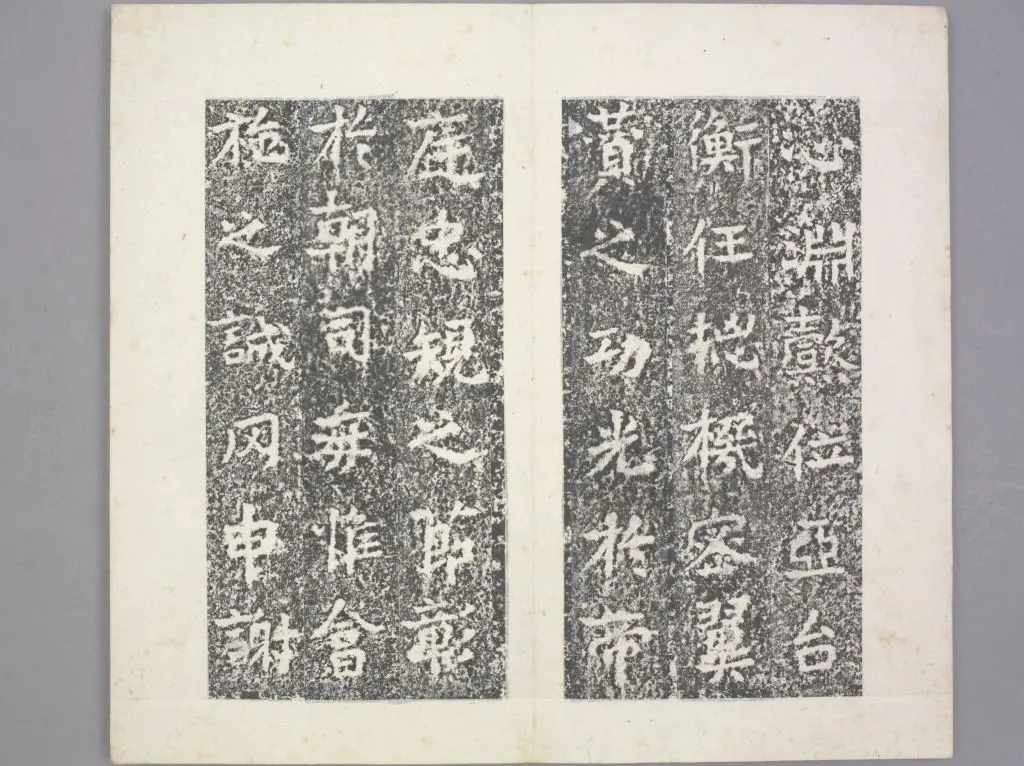 心淵懿位亞台
衡任揔機密翼
賛之功光於帝
庭忠規之節彰
於朝司每惟會
施之誠罔申謝